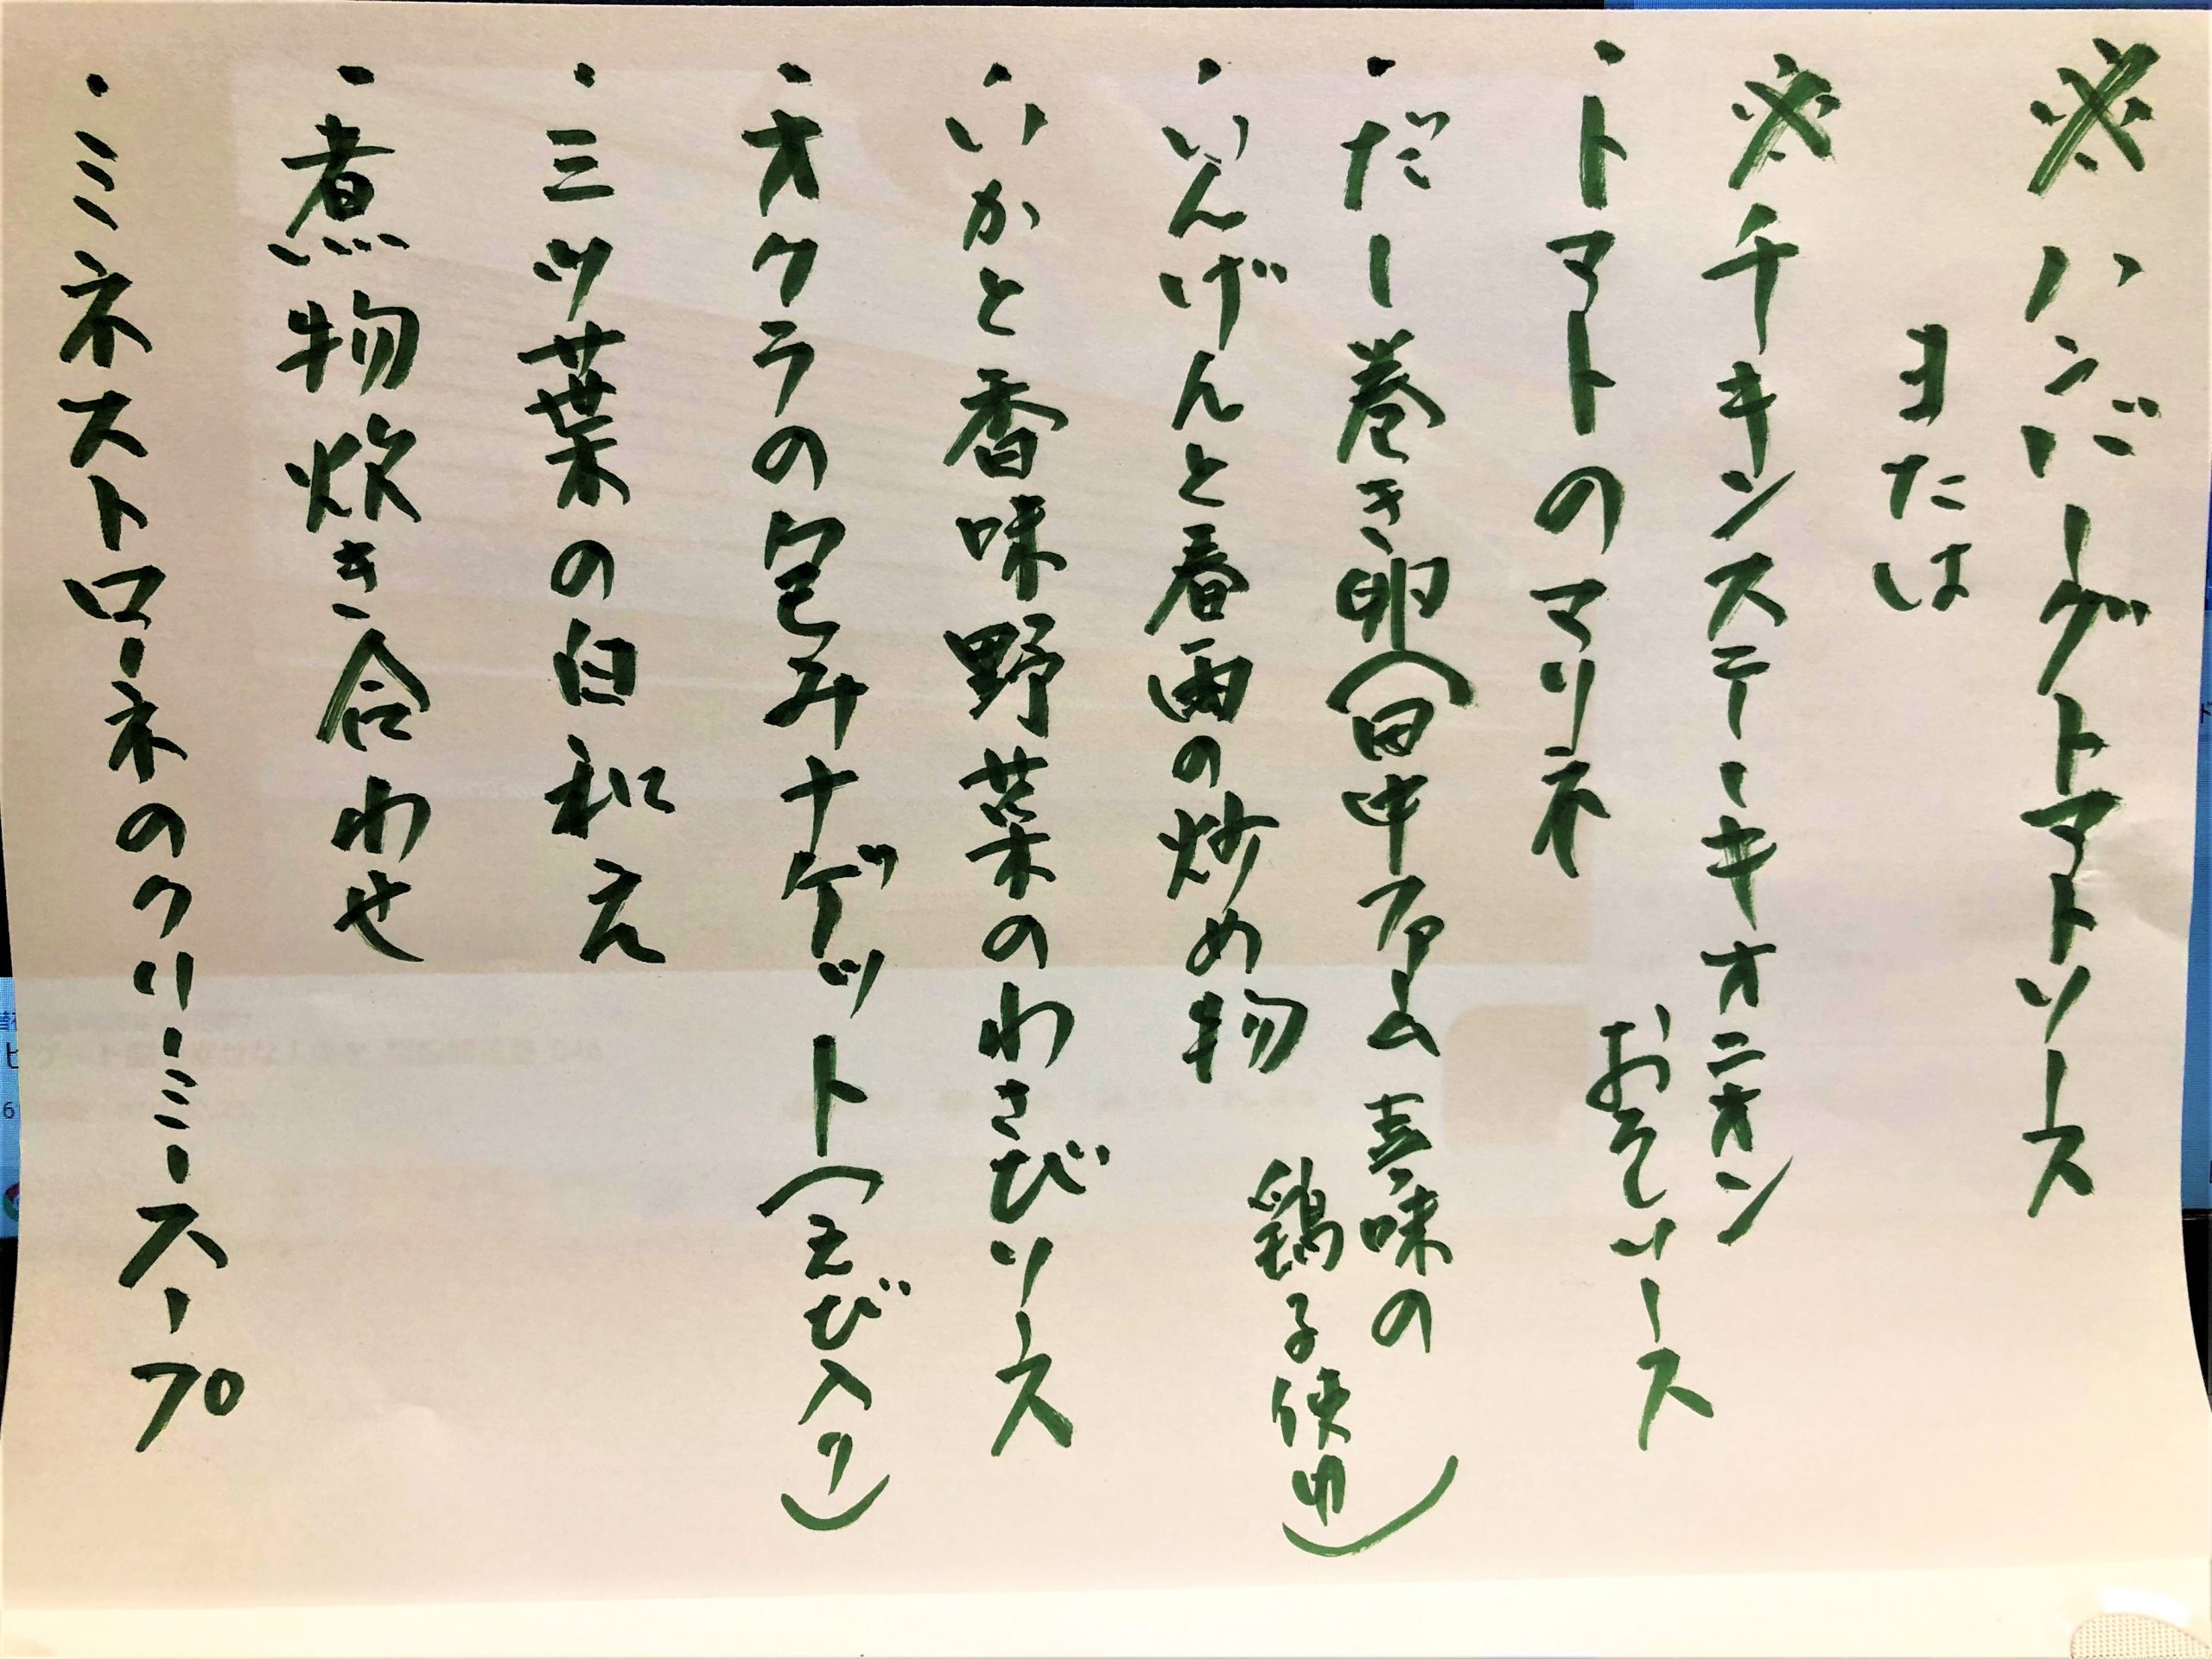 ※ハンバーグトマトソース
または
※チキンステーキオニオン
おろしソース
・トマトのマリネ
・だし巻き卵(田中ファーム喜味の
鶏子使用)
・いんげんと春雨の炒め物
・いかと香味野菜のわさびソース
・オクラの包みナゲット(えび入り)
・三ツ葉の白和え
・煮物炊き合わせ
・ミネストローネのクリーミースープ